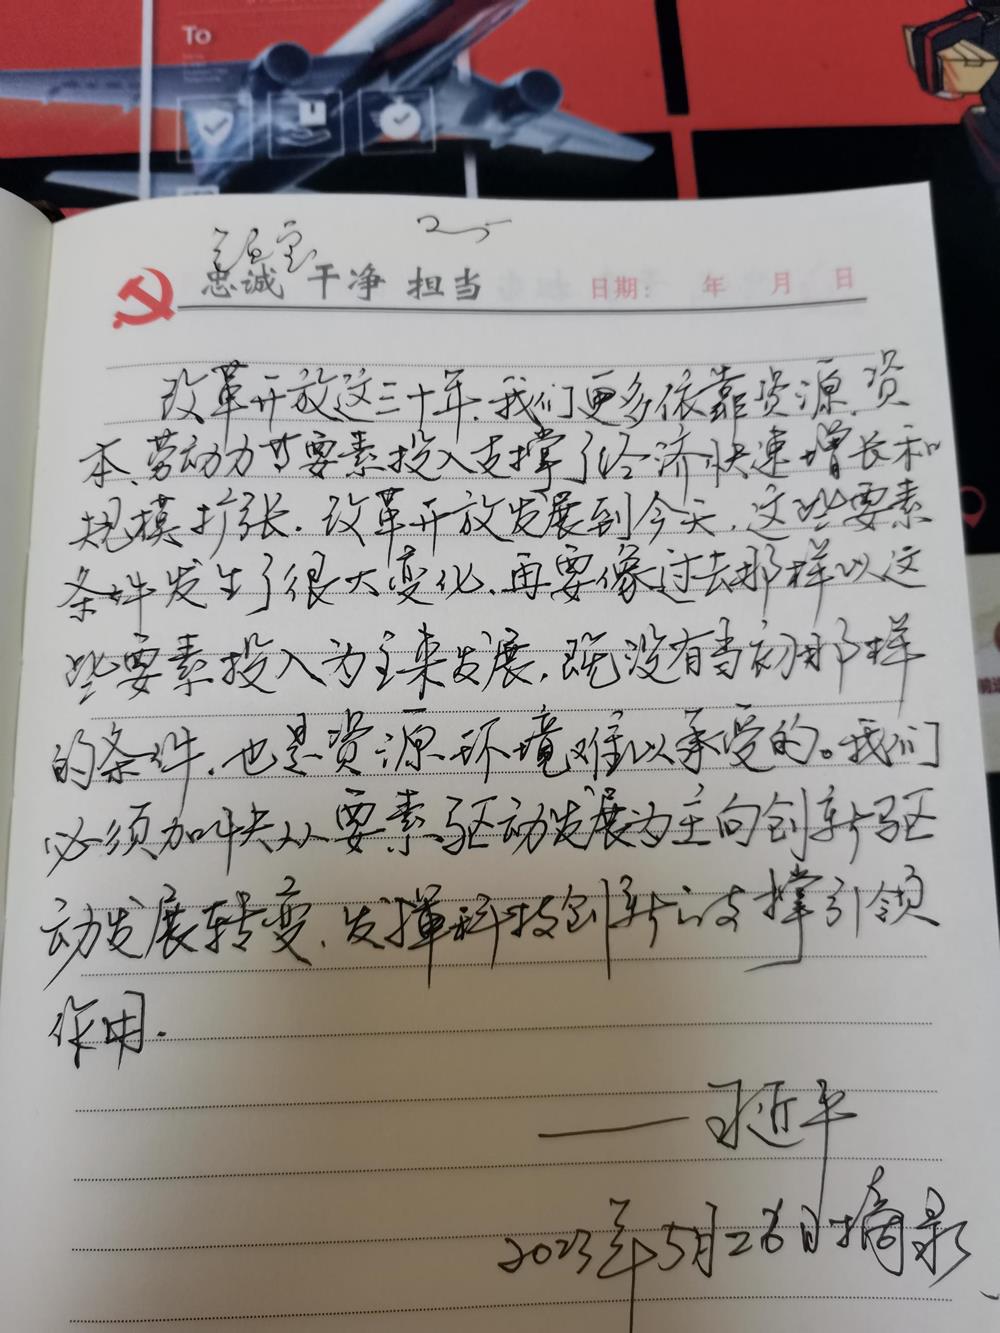 To
忠诚 干净 担当 日期: 年 月 日
改革开放这三十年、我们更多依靠资源、资
本、劳动力等要素投入支撑了经济快速增长和
规模扩张. 改革开放发展到今天、这些要素
条件发生了很大变化、再要像过去那样以这
些要素投入为主来发展, 既没有当初那样
的条件、也是资源环境难以承受的。我们
必须加快从要素驱动发展为主向创新驱
动发展转变、发挥科技创新的支撑引领
作用.
——习近平
2023年5月26日摘录